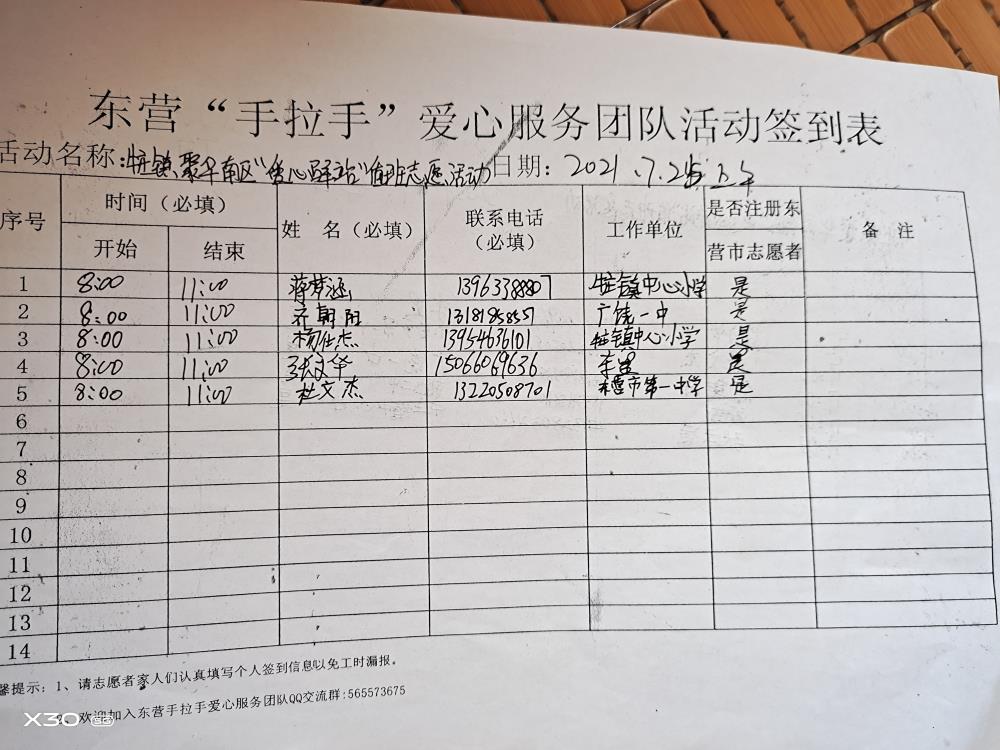 东营“手拉手”爱心服务团队活动签到表
活动名称: 镇 南区“爱心驿站”值班志愿活动 日期: 2021.7.25 上午
序号 时间（必填） 姓 名（必填） 联系电话（必填） 工作单位 是否注册东营市志愿者 备 注
开始 结束
1 8:00 11:00 蒋梦涵 13963388807 镇中心小学 是
2 8:00 11:00 齐朝阳 广饶一中 是
3 8:00 11:00 杨仕杰 13954636101 镇中心小学 是
4 8:00 11:00 张文华 15066069636 是
5 8:00 11:00 杜文杰 13220508701 东营市第一中学 是
6
7
8
9
10
11
12
13
14
馨提示: 1、请志愿者家人们认真填写个人签到信息以免工时漏报。
2、欢迎加入东营手拉手爱心服务团队QQ交流群:565573675
X30